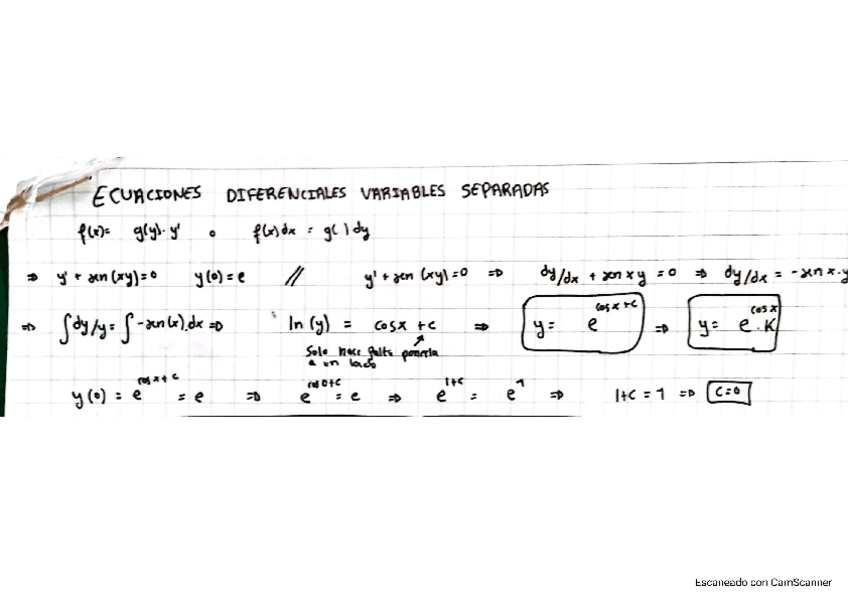 ECUACIONES DIFERENCIALES VARIABLES SEPARADAS
f(x)= g(y)·y' o f(x)dx = g( )dy
⇒ y' + sen(xy)=0 y(0)=e // y' + sen(xy)=0 ⇒ dy/dx + sen xy =0 ⇒ dy/dx = -sen x·y
⇒ ∫dy/y = ∫-sen(x).dx ⇒ ln(y) = cosx +c ⇒ y= e^cosx+c ⇒ y= e^cosx·K
Solo hace falta ponerla
a un lado
y(0) = e^cosx+c = e ⇒ e^cos0+c = e ⇒ e^1+c = e^1 ⇒ 1+c = 1 ⇒ c=0
Escaneado con CamScanner